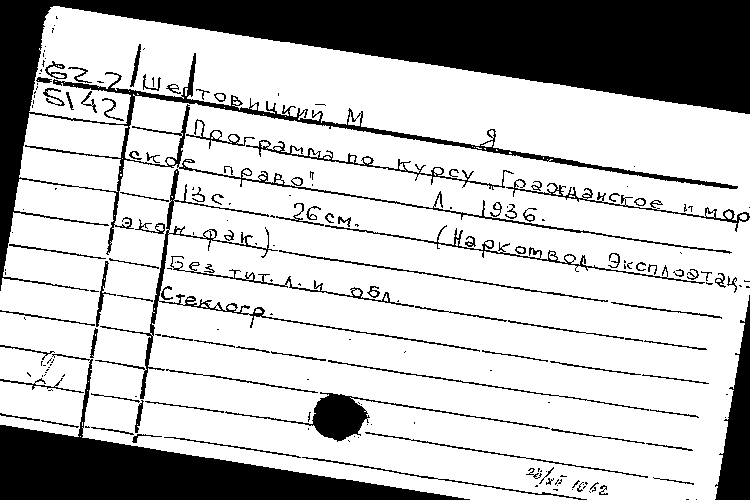 62-2
5142
Шертовицкий, М Я
Программа по курсу „Гражданское и мор
ское право".
Л., 1936.
13 с. 26 см. (Наркомвод Эксплоатац.-
экон. фак.).
Без тит. л. и обл.
Стеклогр.
2
28/XII 1962